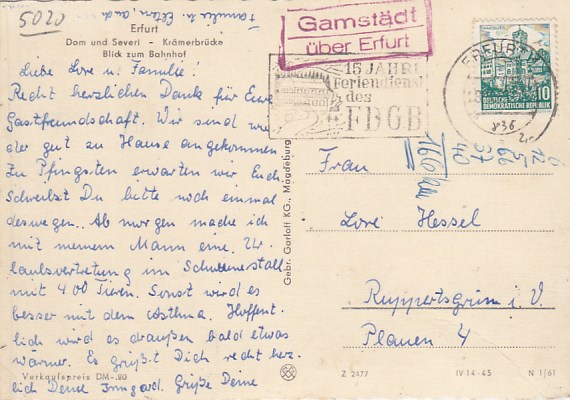 5020
Familie u. Eltern, auch
Erfurt
Dom und Severi - Krämerbrücke
Blick zum Bahnhof
Liebe Lore u. Familie!
Recht herzlichen Dank für Eure
Gastfreundschaft. Wir sind wie-
der gut zu Hause angekommen
Zu Pfingsten erwarten wir Euch
Schreibst Du bitte noch einmal
deswegen. Ab morgen mache ich
mit meinem Mann eine Ur-
laubsvertretung im Schweinestall
mit 400 Tieren. Sonst wird es
besser mit dem Asthma. Hoffent-
lich wird es draußen bald etwas
wärmer. Es grüßt Dich recht herz-
lich Deine Irmgard. Grüße Deine
Verkaufspreis DM -.20
Gebr. Garloff KG., Magdeburg
Gamstädt
über Erfurt
15 JAHRE
Feriendienst
des
FDGB
ERFURT
DEUTSCHE
DEMOKRATISCHE REPUBLIK
10
Frau
Lore Hessel
Ruppertsgrün i. V.
Plauen 4
Z 2477
IV-14-45
N 1/61